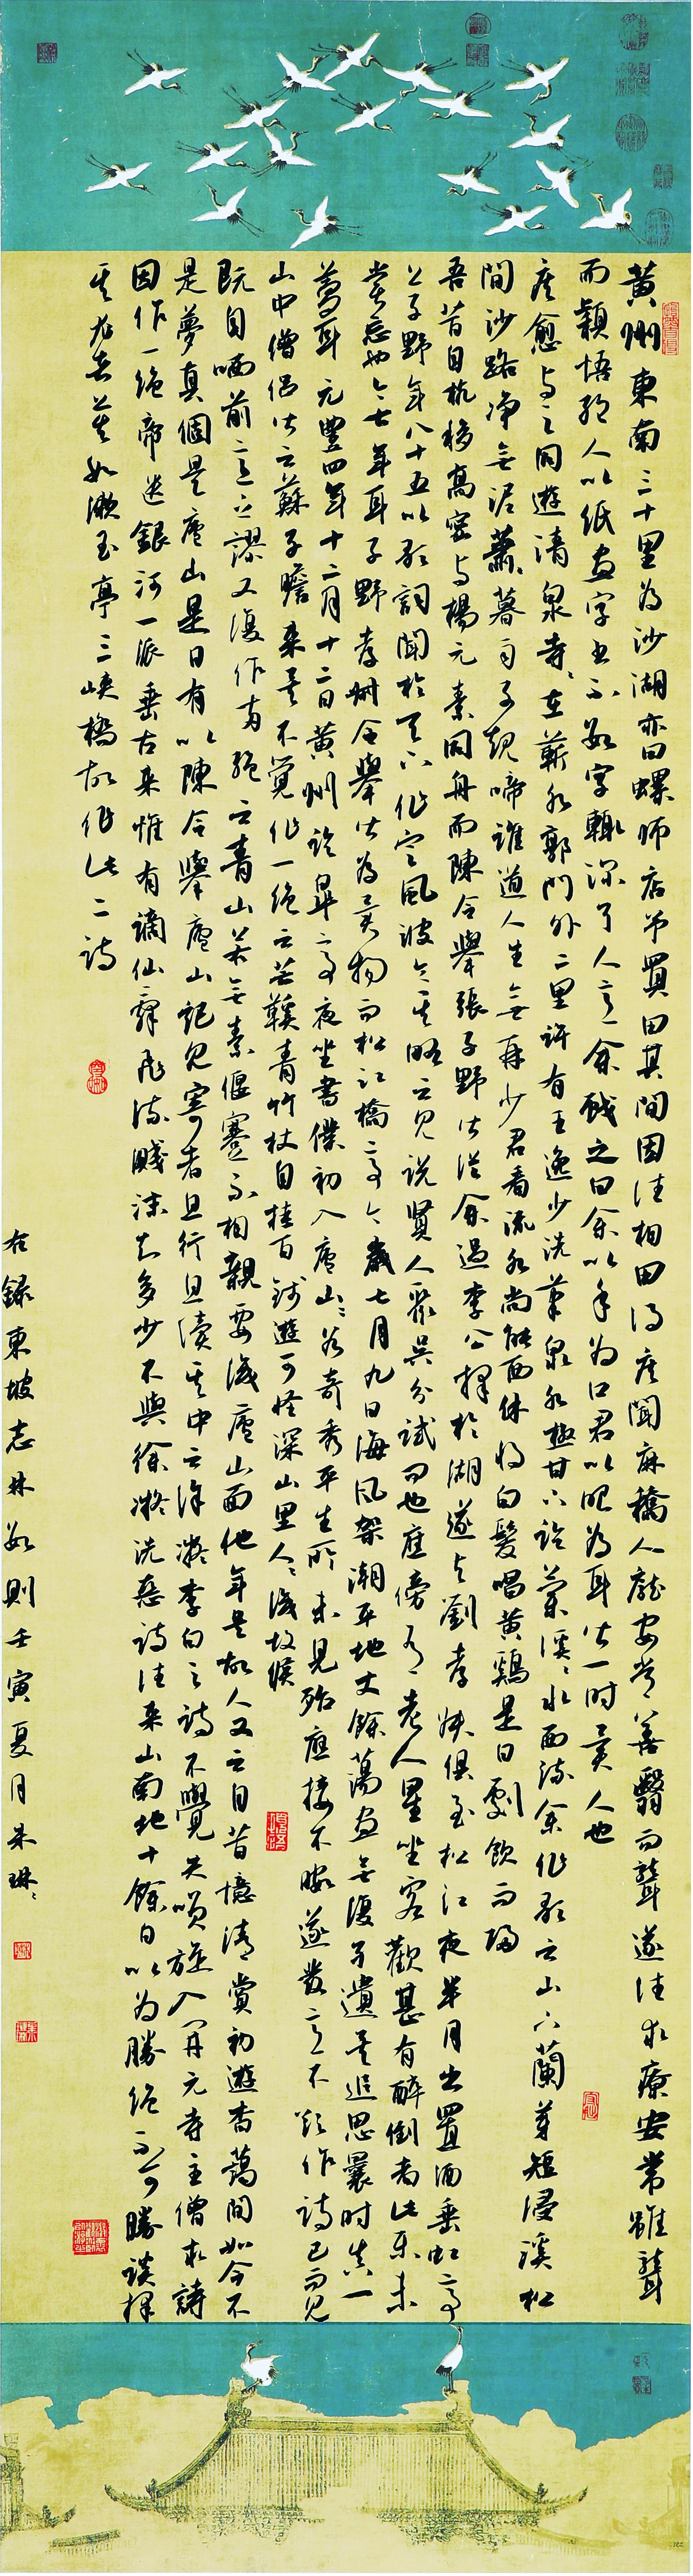 黄州東南三十里為沙湖亦曰螺師店予買田其間因往相田得疾聞麻橋人龐安常善醫而聾遂往求療安常雖聾
而穎悟絕人以紙畫字書不數字輒深了人意余戲之曰余以手為口君以眼為耳皆一時異人也
疾愈與之同遊清泉寺寺在蘄水郭門外二里許有王逸少洗筆泉水極甘下臨蘭溪溪水西流余作歌云山下蘭芽短浸溪松
間沙路淨無泥蕭蕭暮雨子規啼誰道人生無再少君看流水尚能西休將白髮唱黃鷄是日劇飲而歸
吾昔自杭移高密與楊元素同舟而陳令舉張子野皆從余過李公擇於湖遂與劉孝叔俱至松江夜半月出置酒垂虹亭
上子野年八十五以歌詞聞於天下作定風波令其略云見說賢人聚吳分試問也應傍有老人星坐客歡甚有醉倒者此樂未
嘗忘也今七年耳子野孝叔令舉皆為異物而松江橋亭今歲七月九日海風架潮平地丈餘蕩盡無復孑遺矣追思曩時真一
夢耳元豐四年十二月十二日黃州臨皋亭夜坐書僕初入廬山山谷奇秀平生所未見殆應接不暇遂發意不欲作詩已而見
山中僧俗皆云蘇子瞻來矣不覺作一絕云芒鞵青竹杖自挂百錢遊可怪深山里人人識故侯
既自哂前言之謬又復作兩絕云青山若無素偃蹇不相親要識廬山面他年是故人又云自昔憶清賞初遊杳藹間如今不
是夢真個是廬山是日有以陳令舉廬山記見寄者且行且讀其中云徐凝李白之詩不覺失笑旋入開元寺主僧求詩
因作一絕帝遣銀河一派垂古來惟有謫仙辭飛流濺沫知多少不與徐凝洗惡詩往來山南地十餘日以為勝絕不可勝談擇
其尤者莫如漱玉亭三峽橋故作此二詩
右錄東坡志林數則壬寅夏月朱琳